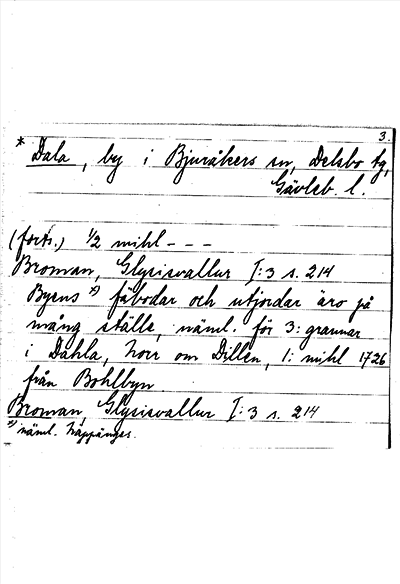 3.
* Dala, by i Bjuråkers sn, Delsbo tg,
Gävleb. l.
(forts.) 1/2 mihl - - -
Broman, Glysisvallur I:3 s. 214
Byens x) fäbodar och utjordar äro på
mång ställe, näml. för 3: grannar
i Dahla, norr om Dillen, 1: mihl 1726
från Bohlbyn
Broman, Glysisvallur I:3 s. 214
x) näml. Näppänges.